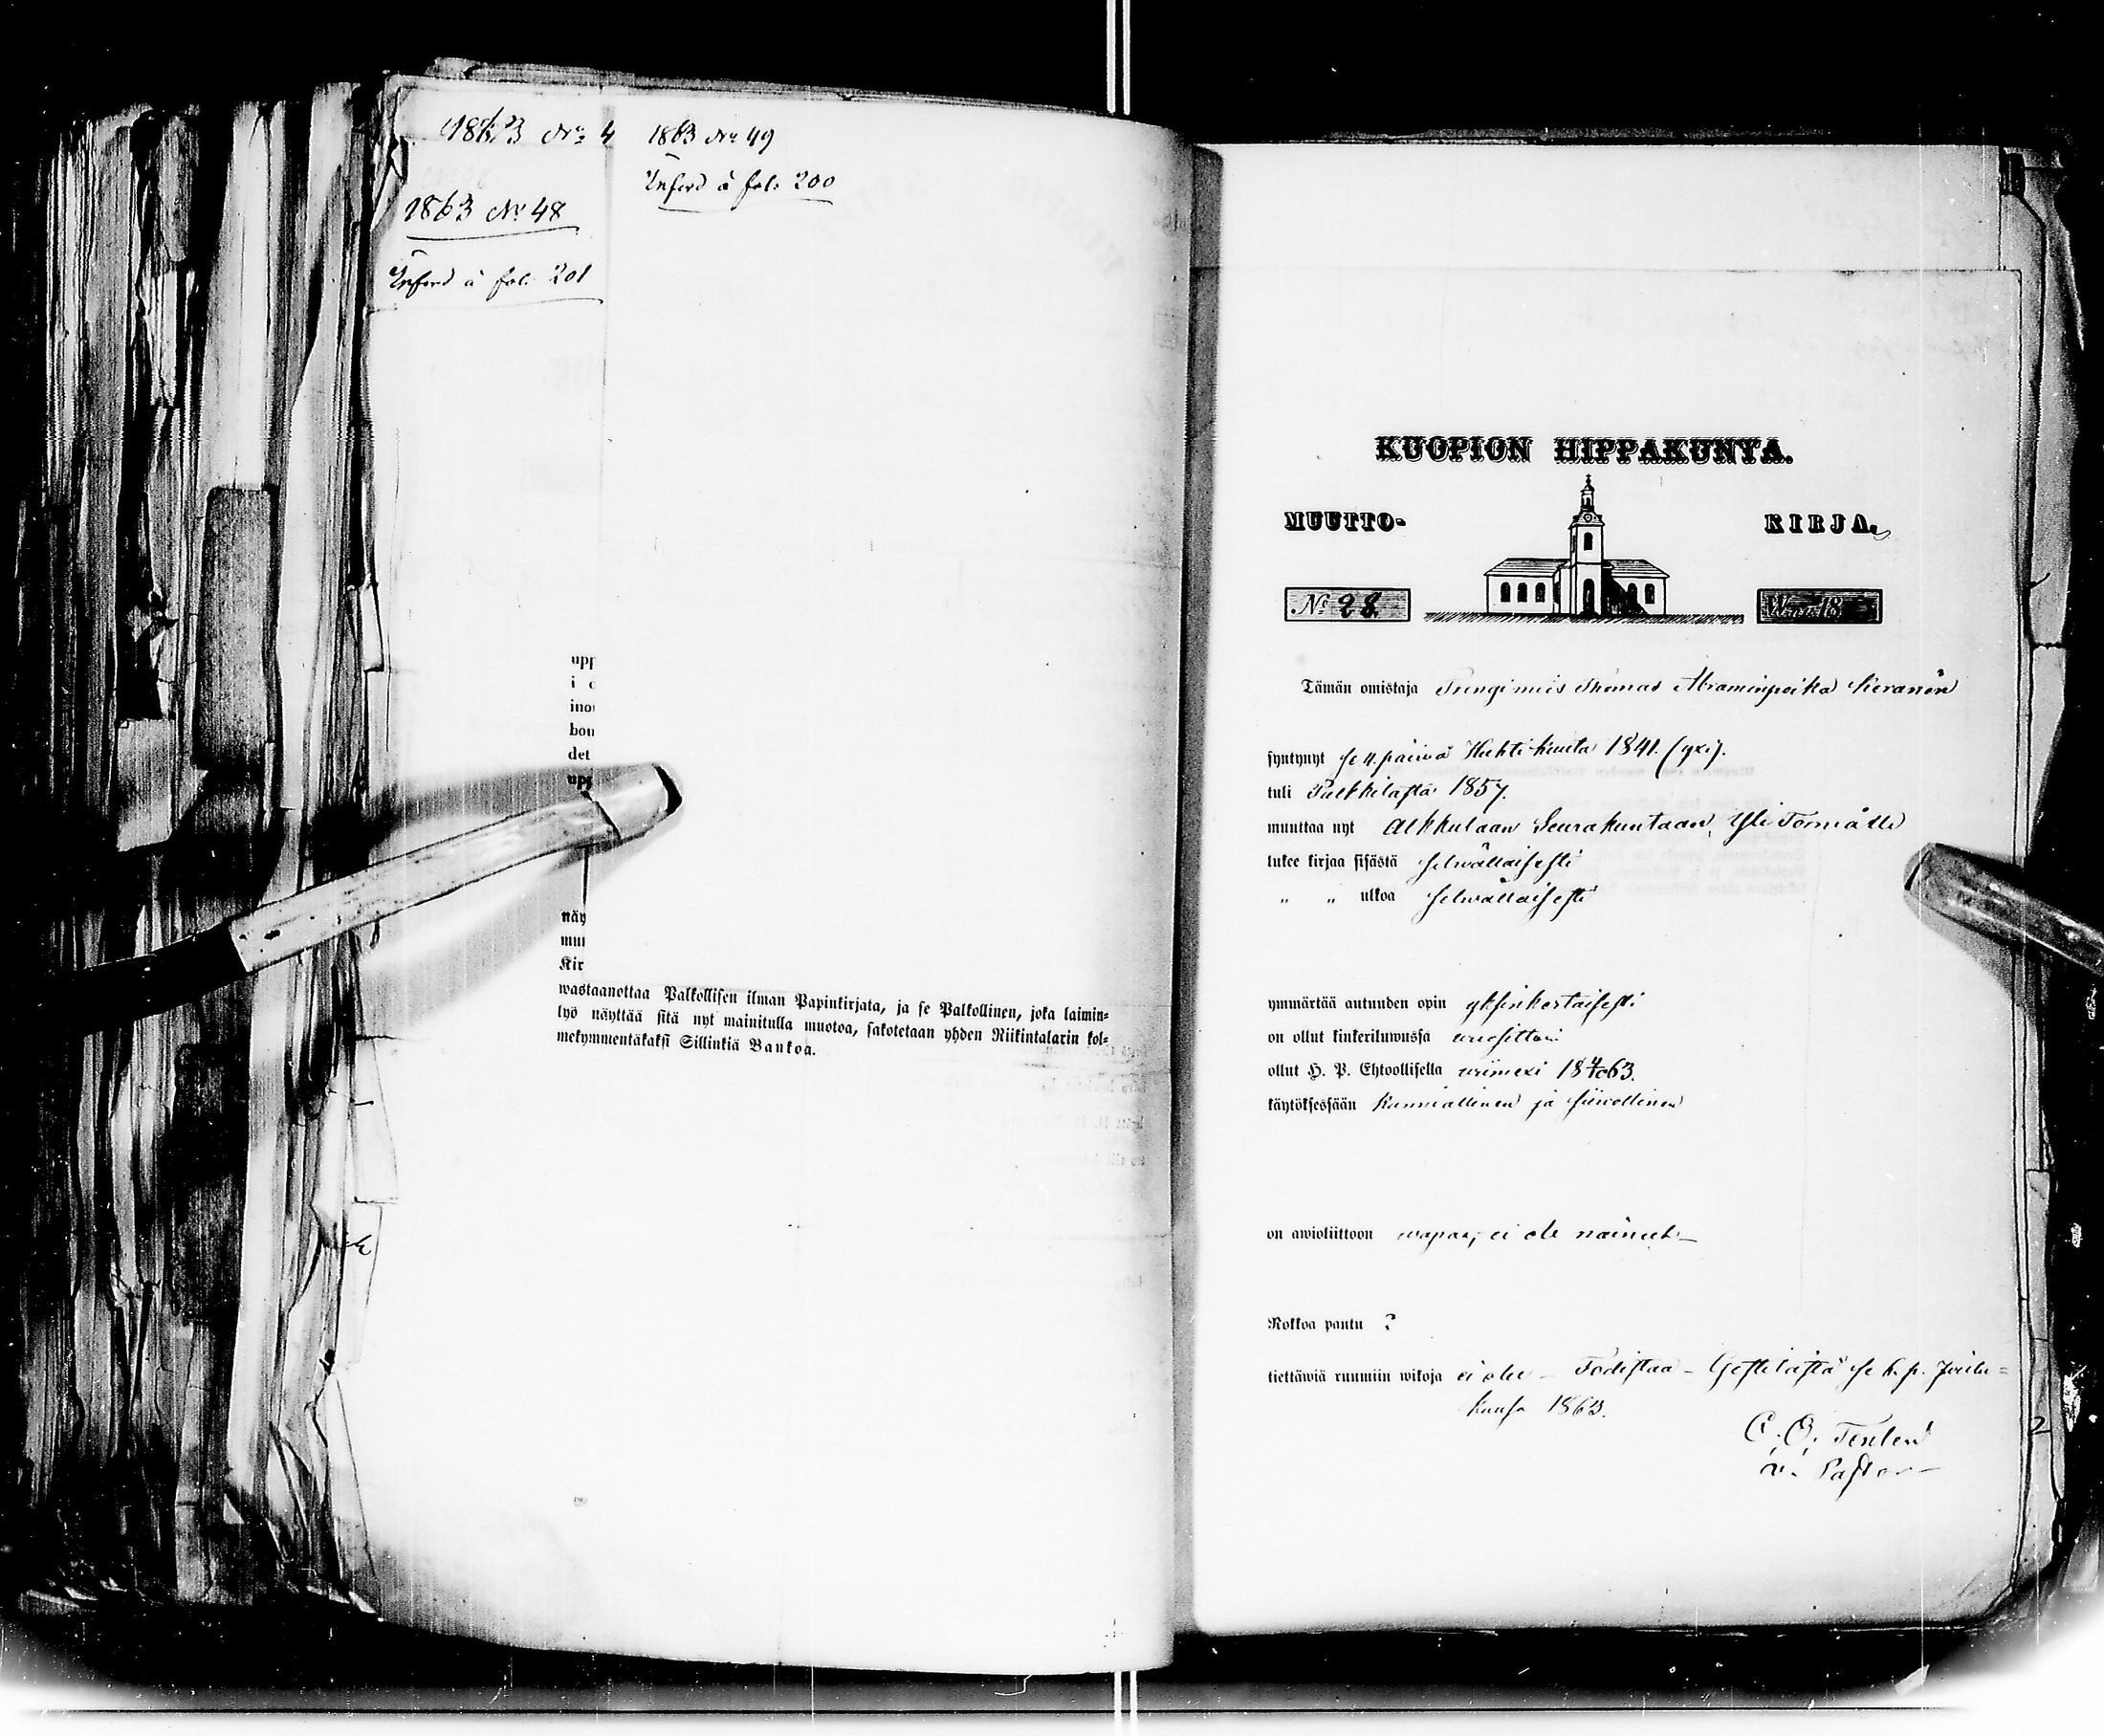 1863 No 4
1863 No 49
Införd å fol. 200
1863 No 48
Införd å fol. 201
upp
i
ino
bon
det
upp
näy
mui
Kir
wastaanottaa Palkollisen ilman Papinkirjata, ja se Palkollinen, joka laimin-
lyö näyttää sitä nyt mainitulla muotoa, sakotetaan yhden Riikintalarin kol-
mekymmentäkaksi Sillinkiä Bankoa.
KUOPION HIPPAKUNTA.
MUUTTO- KIRJA.
No 28. Wnna 18
Tämän omistaja Trengimies Thomas Abraminpoika Kieranèn
syntynyt se 4. päiwä Huhti kuuta 1841. (yxi).
tuli Pulkkilasta 1857.
muuttaa nyt Alkkulaan Seurakuntaan, Yli Torniålle
lukee kirjaa sisästä selwällaisesti
" " ulkoa selwällaisesti
ymmärtää autuuden opin yksinkertaisesti
on ollut kinkeriluwussa wuosittain
ollut H. P. Ehtoollisella wiimexi 18 4/10 63.
käytöksessään kunniallinen ja siiwollinen
on awioliittoon wapaa, ei ole nainut
Rokkoa pantu ?
tiettäwiä ruumiin wikoja ei ole – Todistaa – Gestilästä se 6. p. Joulu=
kuusa 1863.
v. Pastor
2